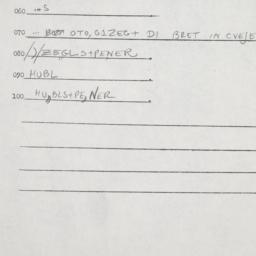 060 ...S
070 ... OTO, G1ZEG+ D1 BRET IN CVEJE
080 /)/ZEGLS+PENER
090 HUBL
100 HU,BLS+PE,NER